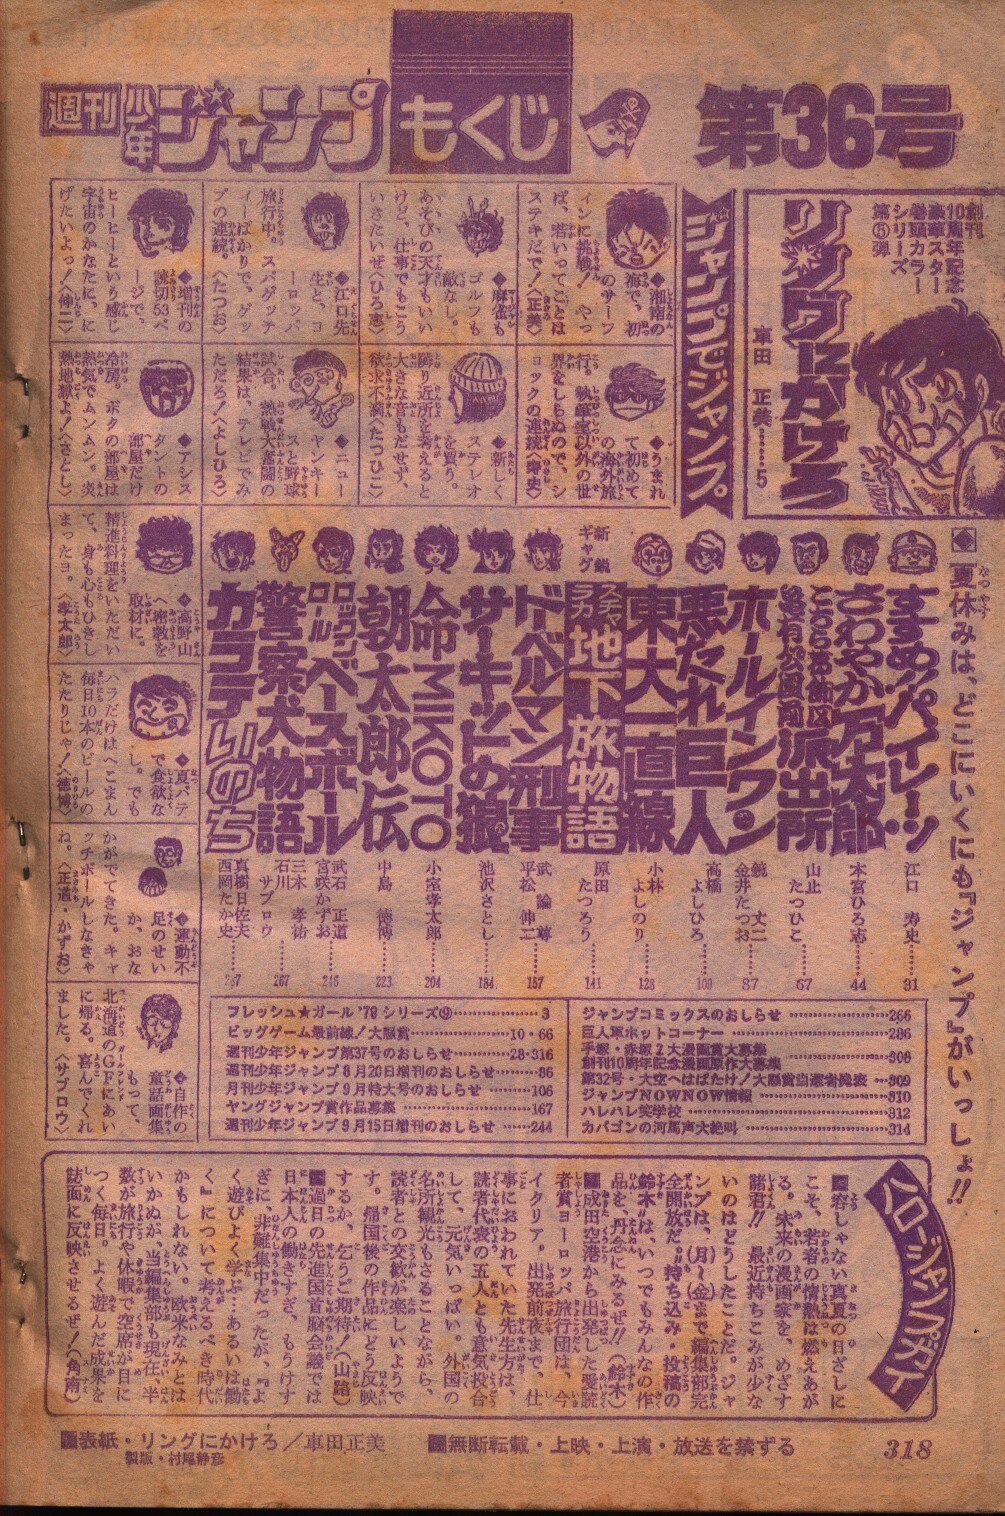 週刊少年ジャンプ
もくじ
第36号
創刊
10周年記念
豪華スター
巻頭カラー
シリーズ
第⑤弾
リングにかけろ
車田 正美……5
ジャンプでジャンプ
◆湘南の
海で、初
のサーフ
ィンに挑戦！ やっ
ぱ、若いってことは
ステキだで！〈正美〉
◆麻雀も
ゴルフも
敵なし。
あそびの天才もいい
けど、仕事でもこう
いきたいぜ〈ひろ志〉
◆江口先
生と、ヨ
ーロッパ
旅行中。スパゲッテ
ィーばかりで、ゲッ
プの連続。〈たつお〉
◆増刊の
読切53ペ
ージで、
ヒーヒーという感じ
宇宙のかなたに、に
げたいよっ！〈伸二〉
◆うまれ
て初めて
の海外旅
行。執筆室以外の世
界をしらぬので、シ
ョックの連続〈寿史〉
◆新しく
ステレオ
を買う。
隣り近所を考えると
大きな音もだせず、
欲求不満〈たつひこ〉
◆ニュー
ヤンキー
スと野球
試合。熱戦大奮闘の
結果は、テレビでみ
ただろ！〈よしひろ〉
◆アシス
タントの
部屋だけ
冷房。ボクの部屋は
熱気でムンムン。炎
熱地獄よ！〈さとし〉
◆高野山
へ〝密教を
取材に。
精進料理をいただい
て、身も心もひきし
まったヨ。〈孝太郎〉
◆夏バテ
で食欲な
し。でも
ハラだけはへこまん
毎日10本のビールの
たたりじゃ！〈徳博〉
◆運動不
足のせい
か、おな
かがでてきた。キャ
ッチボールしなきゃ
ね。〈正道・かずお〉
◆自作の
童話画集
もって、
北海道のGFにあい
に帰る。喜んでくれ
ました。〈サブロウ〉
◆夏休みは、どこにいくにも『ジャンプ』がいっしょ!!
すすめ!!パイレーツ 江口 寿史……31
さわやか万太郎 本宮ひろ志……44
こちら葛飾区亀有公園前派出所 山止 たつひこ……67
ホールインワン 鏡 丈二 金井たつお……87
悪たれ巨人 高橋 よしひろ……109
東大一直線 小林 よしのり……128
新鋭ギャグ
地下旅物語 原田 たつろう……141
ドベルマン刑事 武 論尊 平松 伸二……157
サーキットの狼 池沢さとし……184
命 MIKOTO 小室孝太郎……204
朝太郎伝 中島 徳博……223
ロックンロールベースボール 武石 正道 宮咲かずお……245
警察犬物語 三木 孝祐 石川 サブロウ……267
カラテいのち 真樹日佐夫 西岡たか史……287
フレッシュ★ガール'78シリーズ⑨……3
ビッグゲーム最前線！大懸賞……10・66
週刊少年ジャンプ第37号のおしらせ……28・316
週刊少年ジャンプ8月20日増刊のおしらせ……86
月刊少年ジャンプ9月特大号のおしらせ……106
ヤングジャンプ賞作品募集……167
週刊少年ジャンプ9月15日増刊のおしらせ……244
ジャンプコミックスのおしらせ……266
巨人軍ホットコーナー……286
手塚・赤塚2大漫画賞大募集
創刊10周年記念漫画原作大募集……308
第32号・大空へはばたけ！大懸賞当選者発表……309
ジャンプNOWNOW情報……310
ハレハレ笑学校……312
カバゴンの河馬声大絶叫……314
ハロージャンプスター
■容しゃない真夏の日ざしに
こそ、若者の情熱は燃えあが
る。未来の漫画家を、めざす
諸君!! 最近持ちこみが少な
いのはどうしたことだ。ジャ
ンプは、(月)〜(金)まで編集部完
全開放だ。〝持ち込み・投稿の
鈴木〟は、いつでもみんなの作
品を、丹念にみるぜ!!（鈴木）
■成田空港から出発した愛読
者賞ヨーロッパ旅行団は、今
イタリア。出発前夜まで、仕
事におわれていた先生方は、
読者代表の五人とも意気投合
して、元気いっぱい。外国の
名所観光もさることながら、
読者との交歓が楽しいようで
す。帰国後の作品にどう反映
するか、乞うご期待！（山路）
■過日の先進国首脳会議では
日本人の働きすぎ、もうけす
ぎに、非難集中だったが『よ
く遊びよく学ぶ…あるいは働
く』について考えるべき時代
かもしれない。欧米なみとは
いかぬが、当編集部も現在、半
数が旅行や休暇で空席が目に
つく毎日。よく遊んだ成果を
誌面に反映させるぜ！（角南）
■表紙・リングにかけろ／車田正美
製版・村尾静彦
■無断転載・上映・上演・放送を禁ずる
318